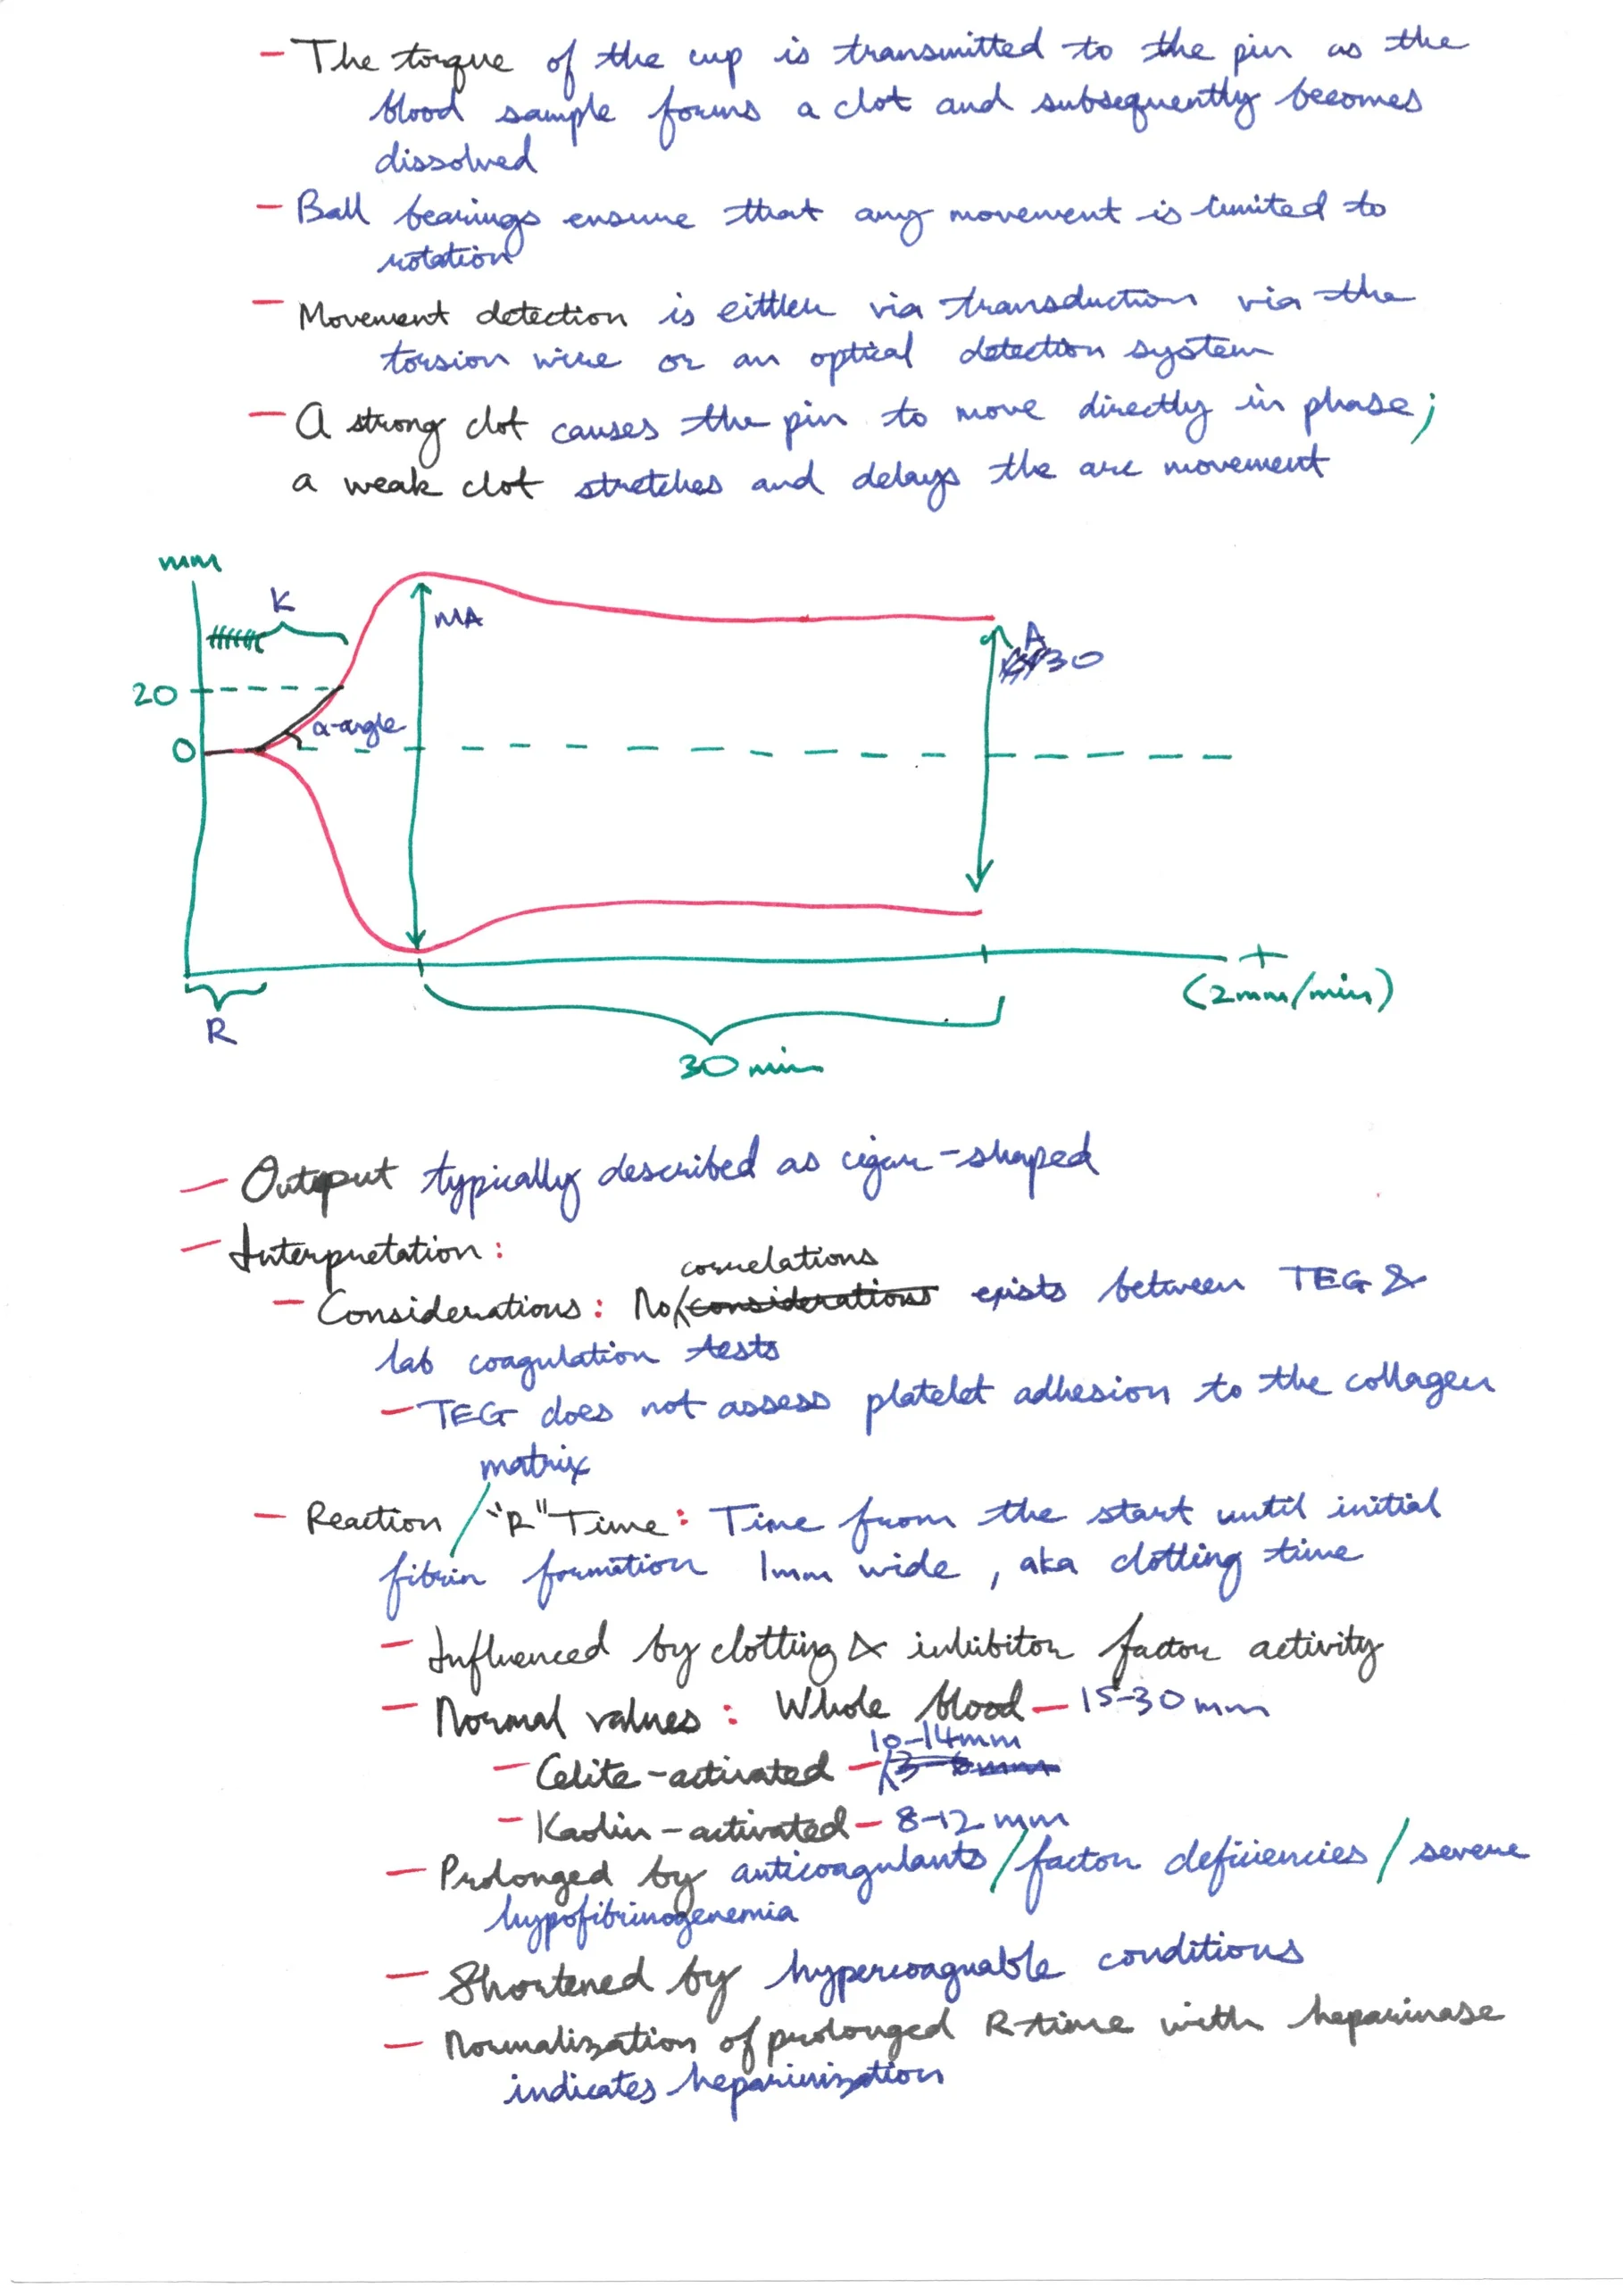 - The torque of the cup is transmitted to the pin as the
blood sample forms a clot and subsequently becomes
dissolved
- Ball bearings ensure that any movement is limited to
rotation
- Movement detection is either via transduction via the
torsion wire or an optical detection system
- A strong clot causes the pin to move directly in phase;
a weak clot stretches and delays the arc movement
mm
K
MA
A
30
20
α-angle
0
t
(2mm/min)
R
30 min
- Output typically described as cigar-shaped
- Interpretation:
correlations
- Considerations: No considerations exists between TEG &
lab coagulation tests
- TEG does not assess platelet adhesion to the collagen
matrix
- Reaction / "R" Time: Time from the start until initial
fibrin formation 1mm wide, aka clotting time
- Influenced by clotting & inhibitor factor activity
- Normal values: Whole blood - 15-30mm
10-14mm
- Celite-activated -
- Kaolin-activated - 8-12 mm
- Prolonged by anticoagulants / factor deficiencies / severe
hypofibrinogenemia
- Shortened by hypercoaguable conditions
- Normalization of prolonged R-time with heparinase
indicates heparinization